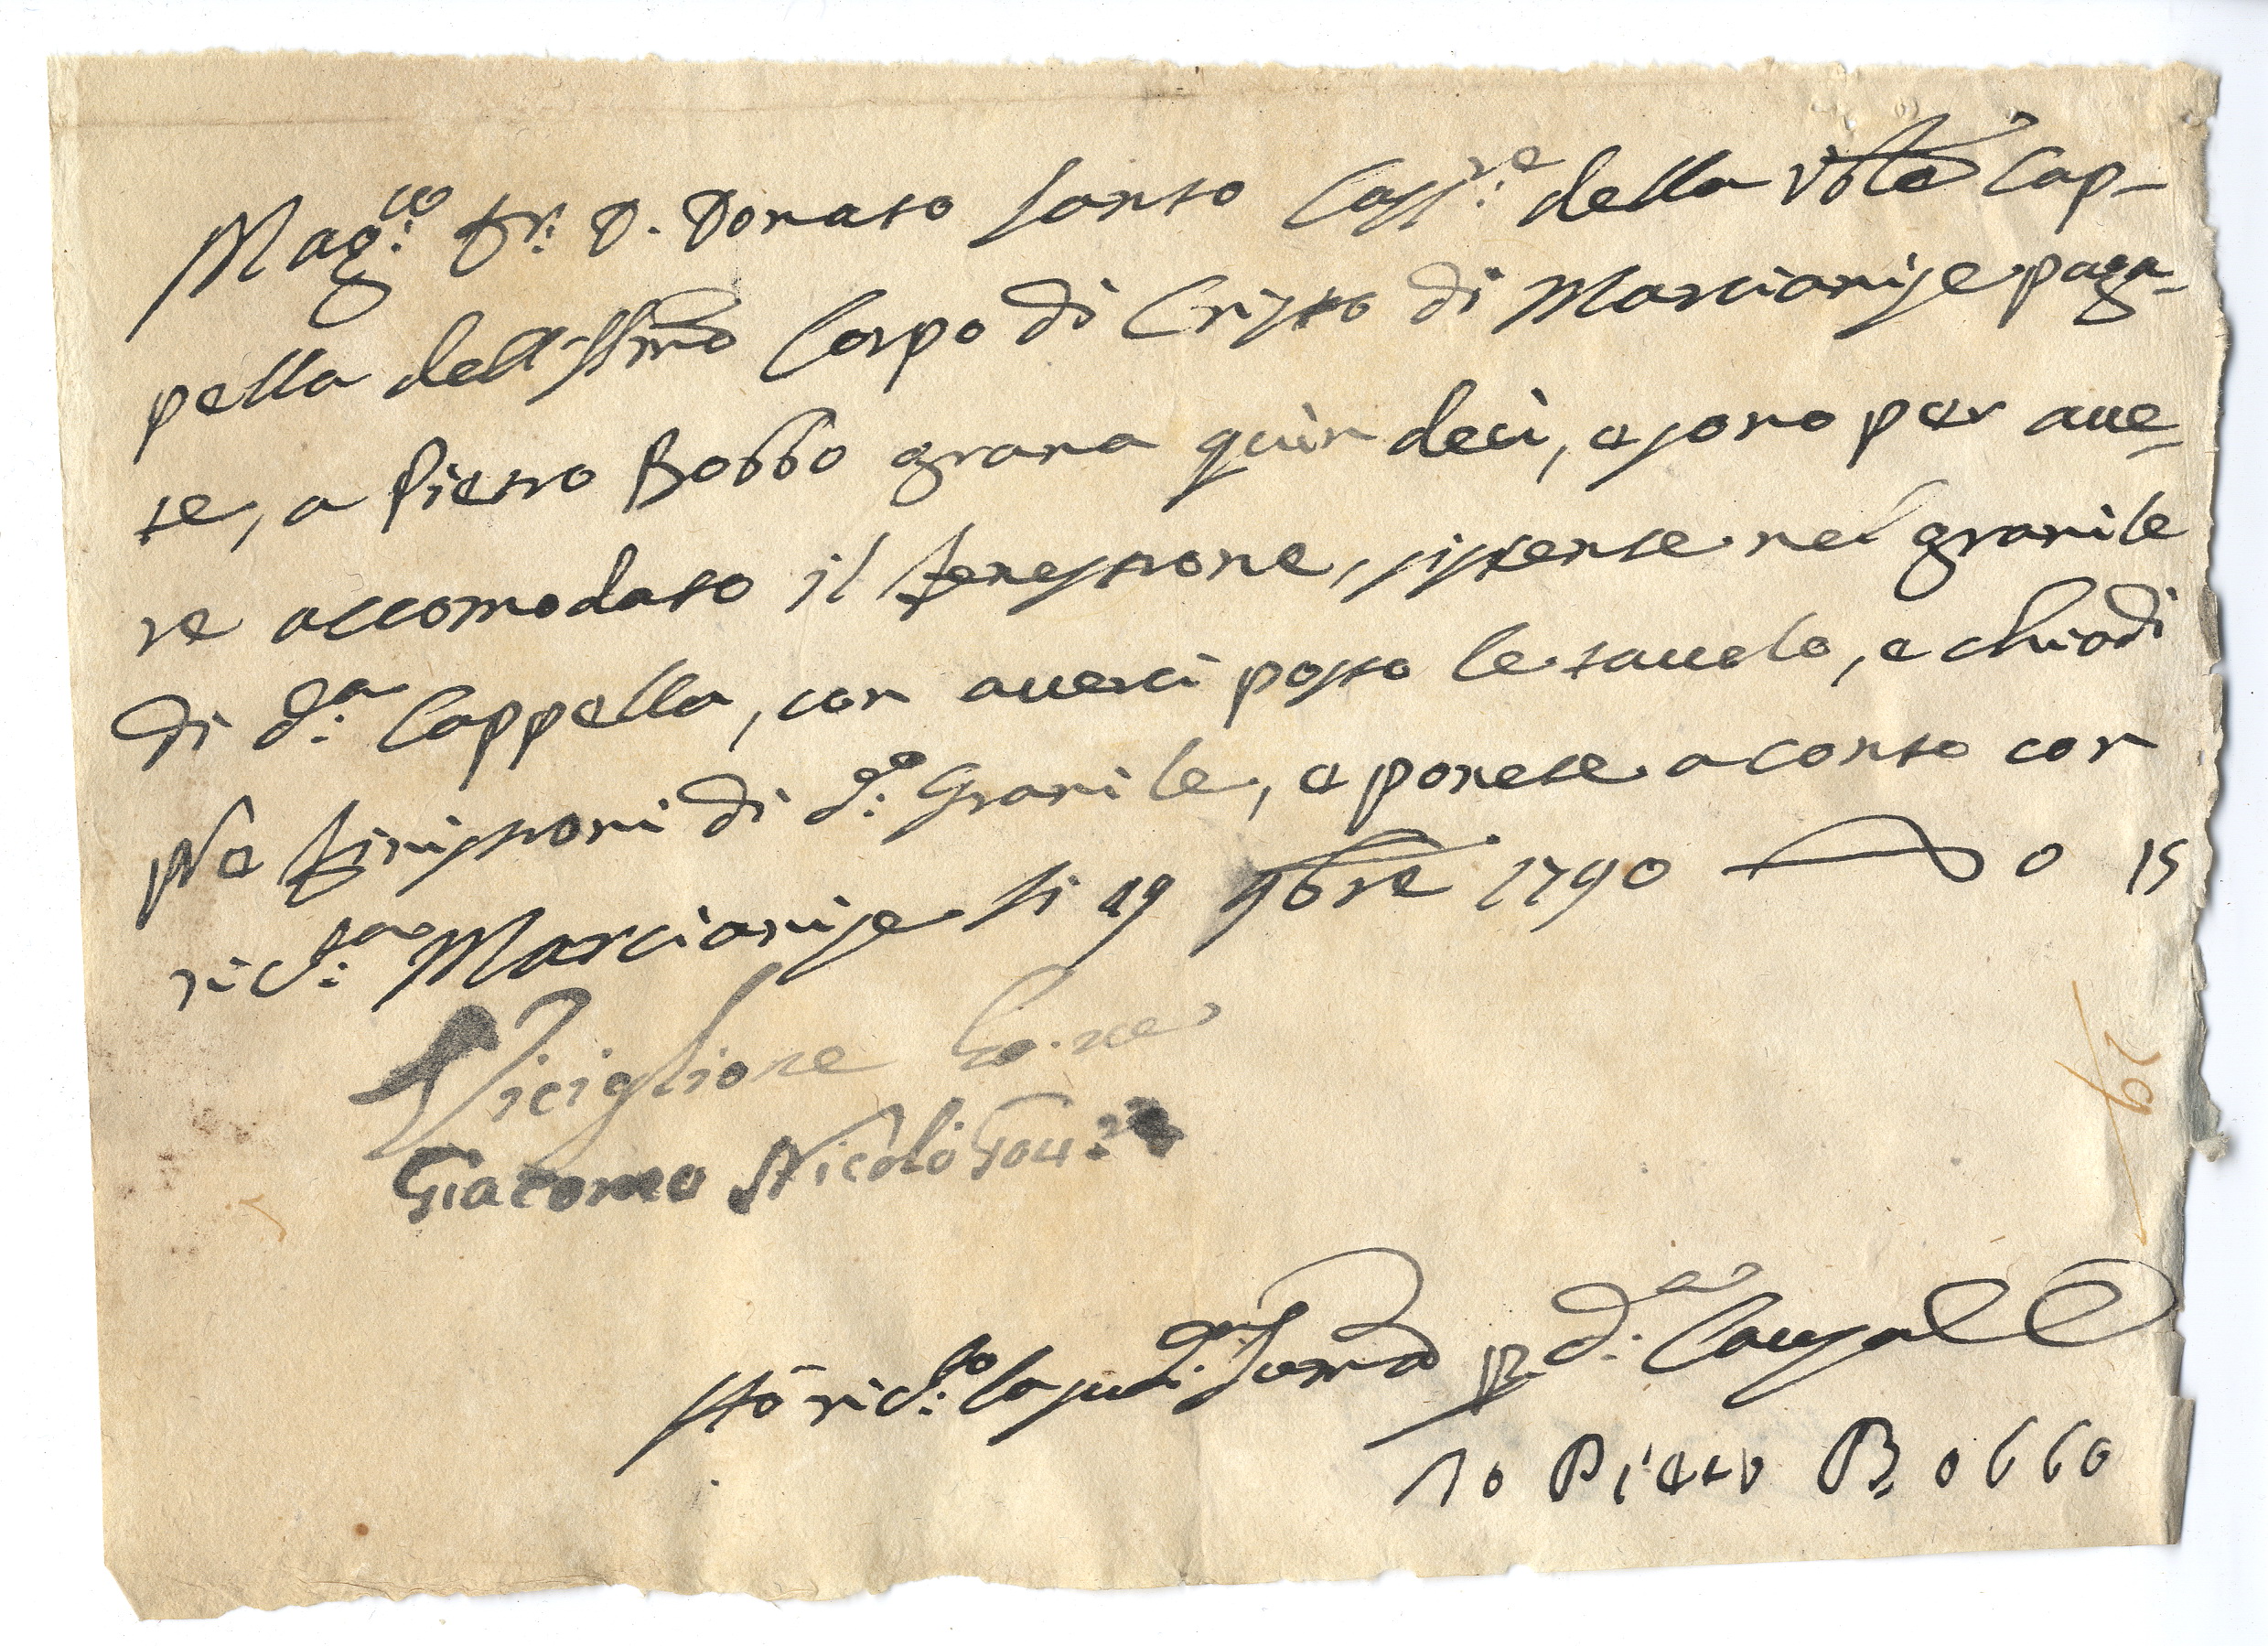 Mag:co Sr: D. Donato Santo Cass:re della Vble Cap-
pella dell SSmo Corpo di Cristo di Marcianise paga-
te, a Pietro Bobbo grana quindeci, e sono per aue-
re accomodato il fenestrone, sistente nel granile
di d:a Cappella, con auerci posto le tauole, e chiodi
Ne finistroni di d:o Granile, e ponete a conto con
ric:ta Marcianise li 19 9bre 1790 0 15
Viciglione
Giacomo Nicolò Gou:re
29
Hò ric:to la sud:a Summa p d:a Causa
Io Pietro Bobbo